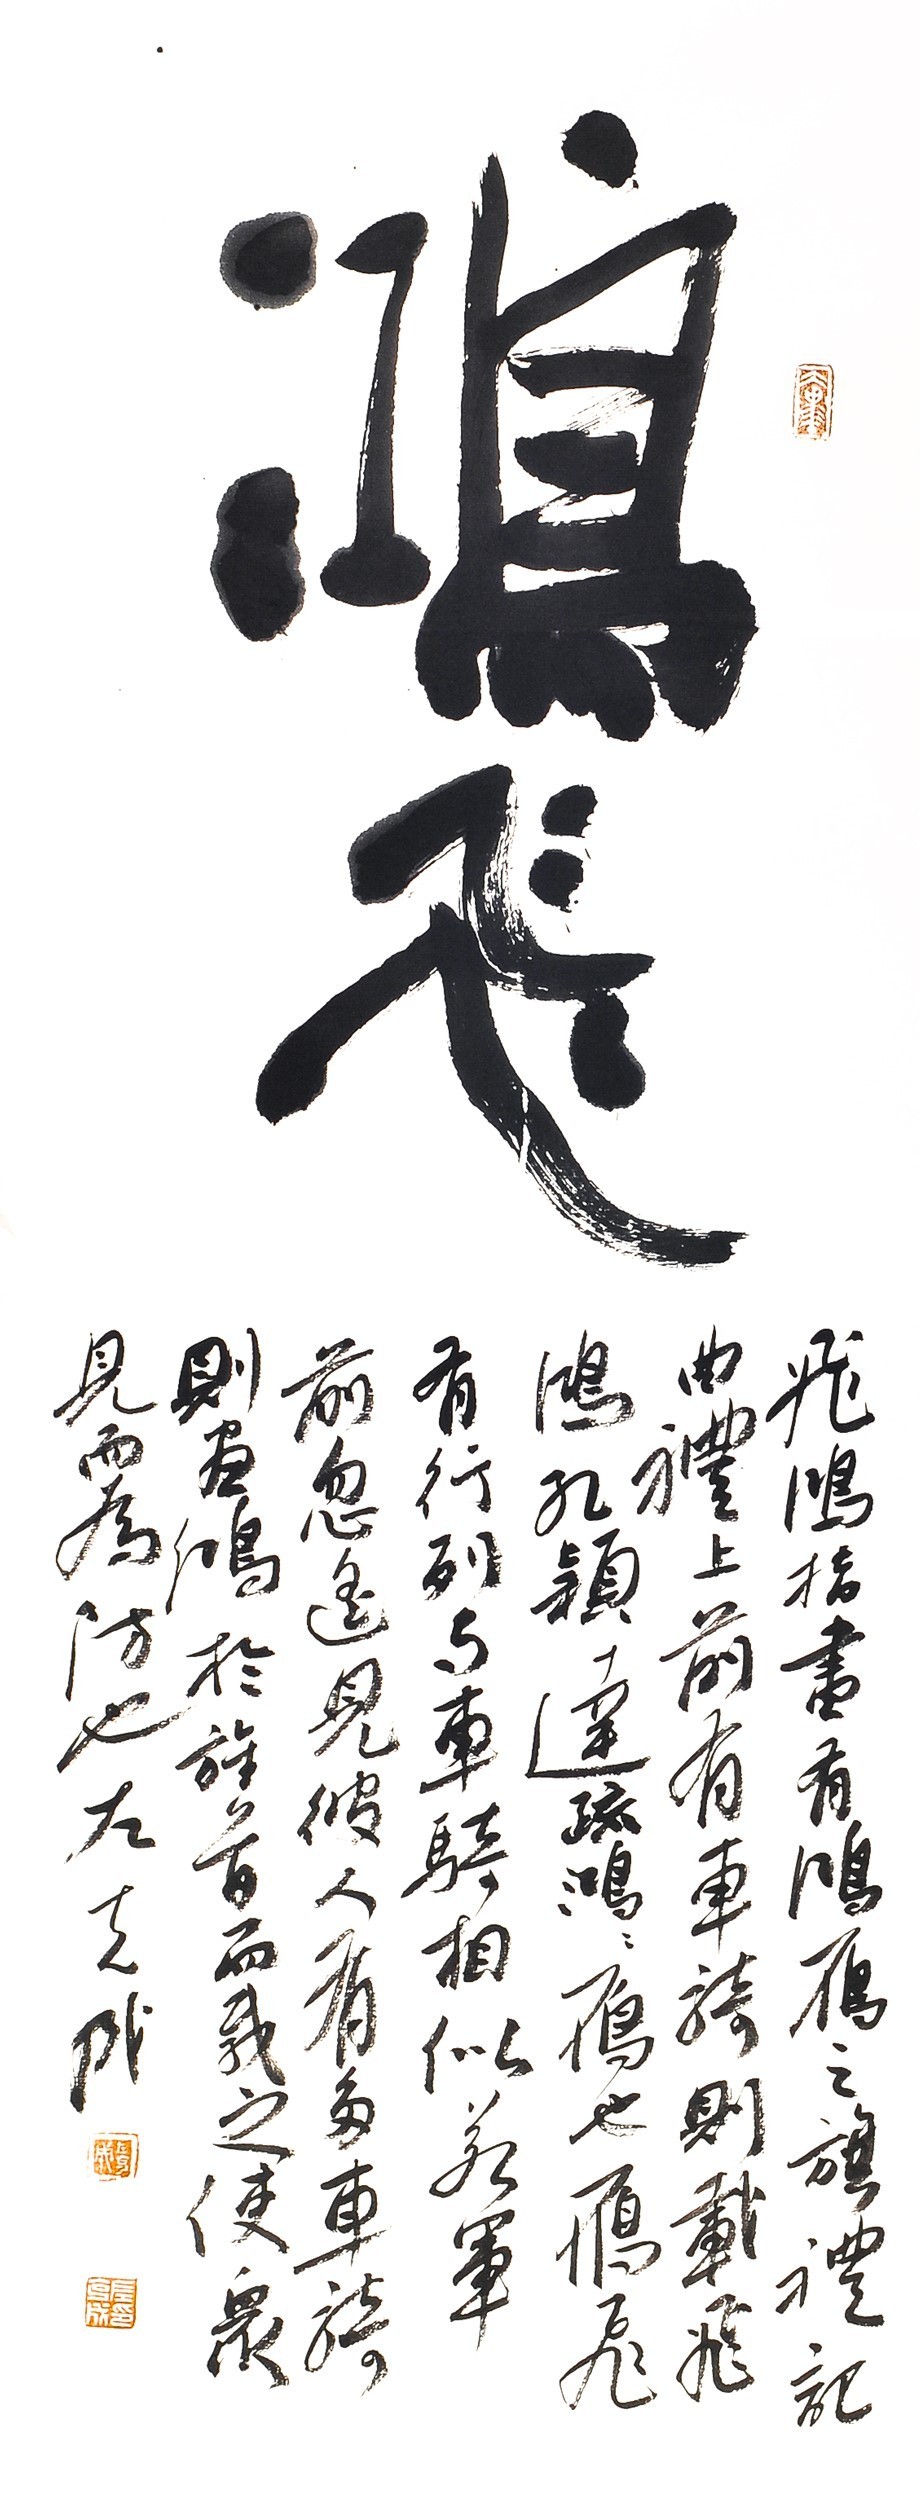 鴻飛
飛鴻指畫有鴻雁之旗禮記
曲禮上前有車騎則載飛
鴻孔穎達疏鴻鴻雁也雁飛
有行列与車騎相似若軍
前忽遙見彼人有多車騎
則畫鴻於旌首而載之使眾
見而為防也左克成